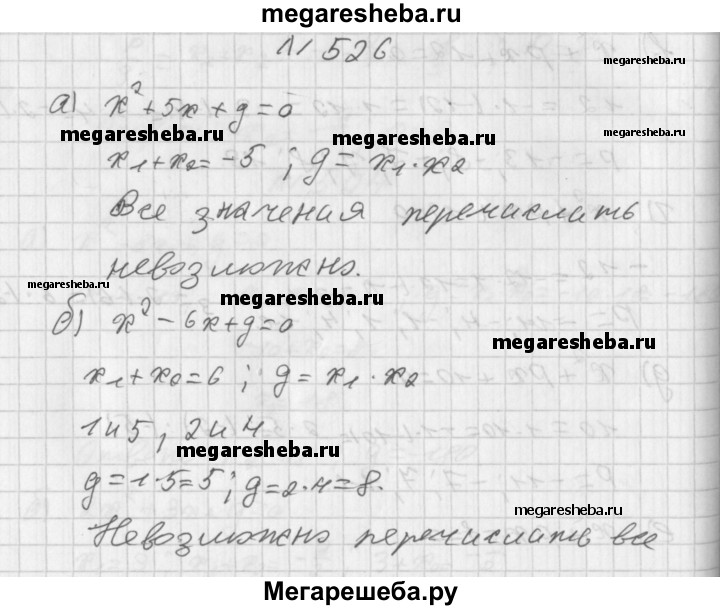 megaresheba.ru
N 526
megaresheba.ru
а) x²+5x+g=0
megaresheba.ru megaresheba.ru megaresheba.ru
x₁+x₂=-5; g=x₁·x₂
Все значения перечислить
невозможно.
megaresheba.ru megaresheba.ru
б) x²-6x+g=0
megaresheba.ru
x₁+x₂=6; g=x₁·x₂
1и5, 2и4
megaresheba.ru
g=1·5=5; g=2·4=8.
megaresheba.ru
Невозможно перечислить все
Мегарешеба.ру